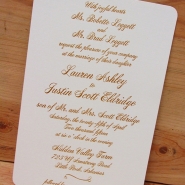 With joyful hearts
Ms. Robette Leggett
and
Mr. Paul Leggett
request the pleasure of your company
at the marriage of their daughter
Lauren Ashley
to
Justin Scott Eldridge
son of Mr. and Mrs. Scott Eldridge
Saturday, the of April
Two thousand fifteen
at o'clock in the evening
Hidden Valley Farm